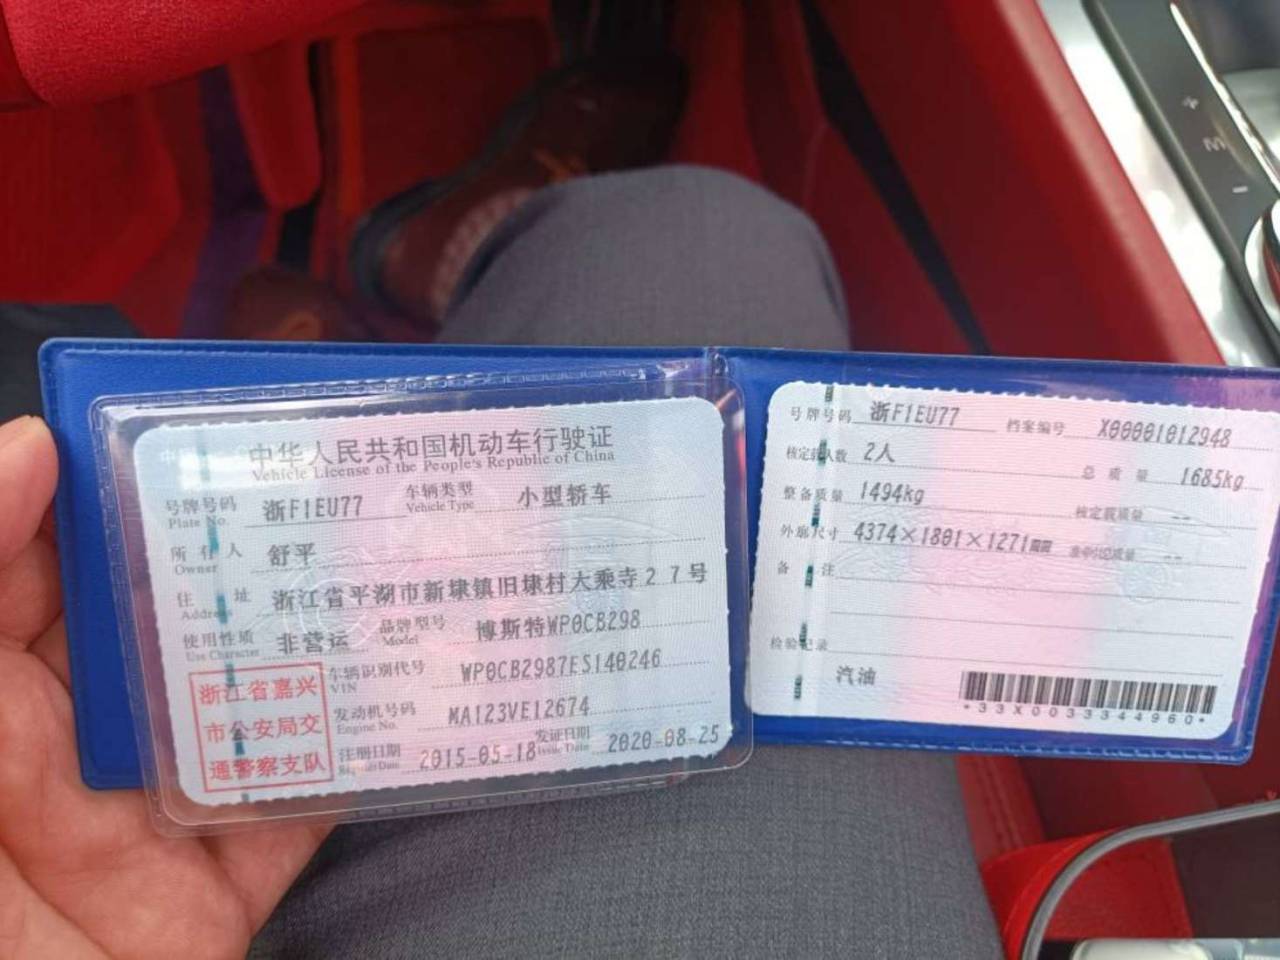 中华人民共和国机动车行驶证
Vehicle License of the People's Republic of China
号牌号码 浙F1EU77 车辆类型 小型轿车
Plate No. Vehicle Type
所有人 舒平
Owner
住址 浙江省平湖市新埭镇旧埭村大乘寺27号
Address
使用性质 非营运 品牌型号 博斯特WP0CB298
Use Character Model
浙江省嘉兴
市公安局交
通警察支队
车辆识别代号 WP0CB2987ES140246
VIN
发动机号码 MA123VE12674
Engine No.
注册日期 2015-05-18 发证日期 2020-08-25
Register Date Issue Date
号牌号码 浙F1EU77 档案编号 X00001012948
核定载人数 2人 总质量 1685kg
整备质量 1494kg 核定载质量 --
外廓尺寸 4374×1801×1271mm 准牵引总质量 --
备注
检验记录
汽油
*33X0033344960*
+
M
-